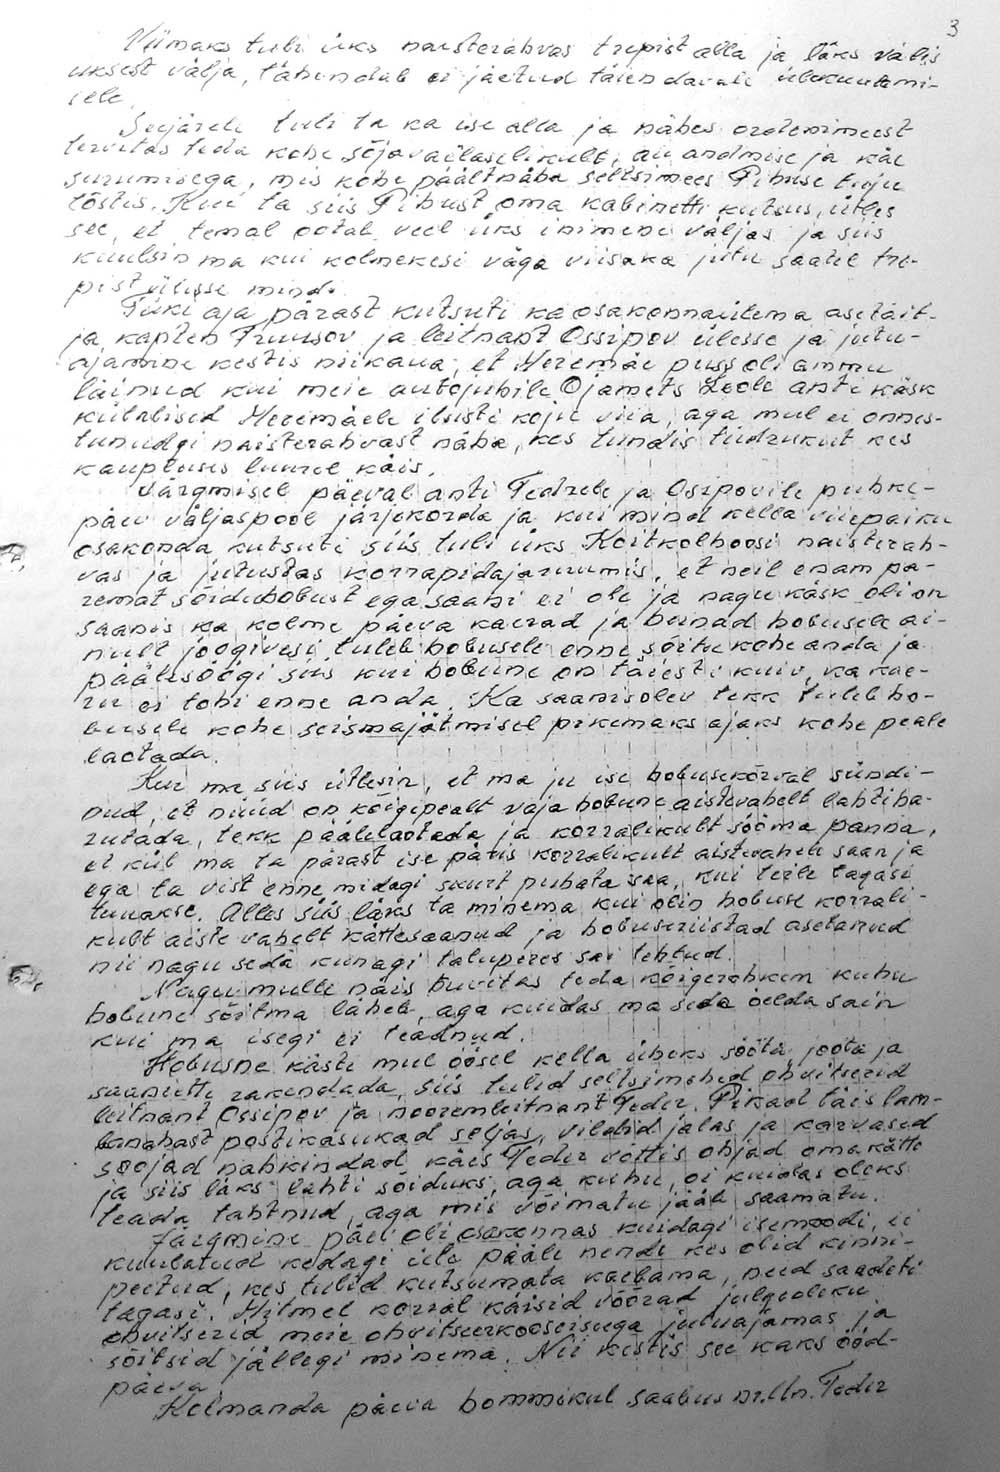 3
Viimaks tuli üks naisterahvas trepist alla ja läks välis
uksest välja, tähendab ei jäetud täiendavale ülekuulami-
sele.
Seejärele tuli ta ka ise alla ja nähes ordenimeest
tervitas teda kohe sõjaväelaselikult, au andmise ja käe
surumisega, mis kohe päältnäha seltsimees Pihuse tuju
tõstis. Kui ta siis Pihust oma kabinetti kutsus, ütles
see, et temal ootab veel üks inimene väljas ja siis
kuulsin ma kui kolmekesi väga viisaka jutu saatel tre-
pist ülesse mindi.
Tüki aja pärast kutsuti ka osakonnaülema asetäit-
ja kapten Truusov ja leitnant Ossipov ülesse ja jutu-
ajamine kestis niikaua, et Meremäe puss oli ammu
läinud kui meie autojuhile Ojamets Loole anti käsk
külalised Meremäele ilusti koju viia, aga mul ei õnnes-
tunudgi naisterahvast näha, kes tundis tüdrukut kes
kaupluses luurel käis.
Järgmisel päeval anti Tedrele ja Osipovile puhke-
päev väljaspool järjekorda ja kui mind kella viiepaiku
osakonda kutsuti siis tuli üks Koitkolhoosi naisterah-
vas ja jutustas korrapidajaruumis, et neil enam pa-
remat sõiduhobust ega saani ei ole ja nagu käsk oli on
saanis ka kolme päeva kaerad ja heinad hobusele ai-
nult joogivesi tuleb hobusele enne sõitu kohe anda ja
päälesöögi siis kui hobune on täiesti kuiv, ka kae-
ru ei tohi enne anda. Ka saanisolev tekk tuleb ho-
busele kohe seismajätmisel pikemaks ajaks kohe peale
laotada.
Kui ma siis ütlesin, et ma ju ise hobusekõrval sündi-
nud, et nüüd on kõigepealt vaja hobune aistevahelt lahtiha-
rutada, tekk päälelaotada ja korralikult sööma panna,
et küll ma ta pärast ise päris korralikult aistevahele saan ja
ega ta vist enne midagi suurt puhata saa, kui teile tagasi
tuuakse. Alles siis läks ta minema kui olin hobuse korrali-
kult aiste vahelt kättesaanud ja hobuseriistad asetanud
nii nagu seda kunagi taluperes sai tehtud.
Nagu mulle näis huvitas teda kõigerohkem kuhu
hobune sõitma läheb, aga kuidas ma seda öelda sain
kui ma isegi ei teadnud.
Hobusne kästi mul öösel kella üheks sööta, joota ja
saaniette rakendada, siis tulid seltsimehed ohvitserid
leitnant Ossipov ja nooremleitnant Teder. Pikad täis lam-
banahast postikasukad seljas, vildid jalas ja karvased
soojad nahkindad käis Teder võttis ohjad oma kätte
ja siis läks lahti sõiduks, aga kuhu, oi kuidas oleks
teada tahtnud, aga mis võimatu jääb saamatu.
Järgmine päev oli osakonnas kuidagi isemoodi, ei
kuulatud kedagi üle pääle nende kes olid kinni-
peetud, kes tulid kutsumata kaebama, need saadeti
tagasi. Mitmel korral käisid võõrad julgeoleku
ohvitserid meie ohvitserkoosseisuga jutuajamas ja
sõitsid jällegi minema. Nii kestis see kaks ööd-
päeva.
Kolmanda päeva hommikul saabus nr.ltn. Teder